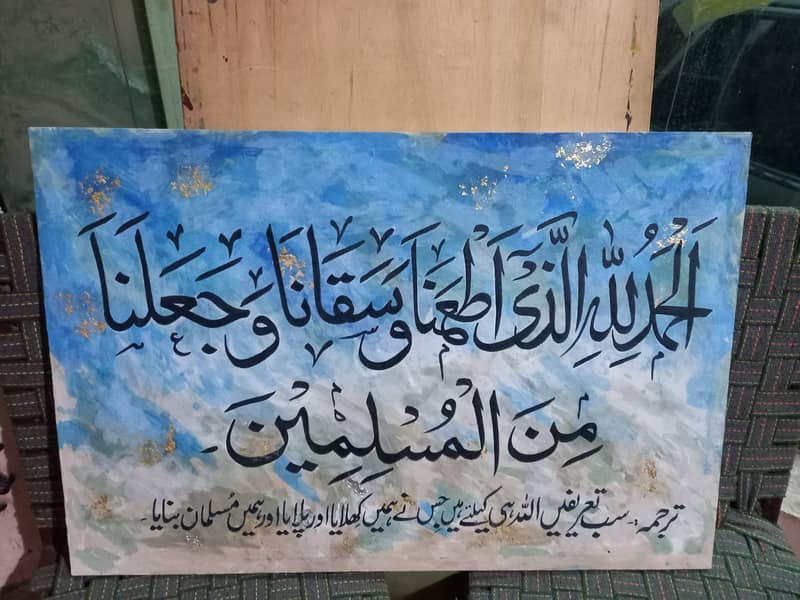 اَلْحَمْدُ لِلّٰہِ الَّذِیْ اَطْعَمَنَا وَسَقَانَا وَجَعَلَنَا
مِنَ الْمُسْلِمِیْنَ۔
ترجمہ:۔ سب تعریفیں اللہ ہی کیلئے ہیں جس نے ہمیں کھلایا اور پلایا اور ہمیں مُسلمان بنایا۔